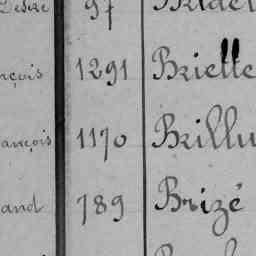 97
nçois 1291 Brielle
ançois 1170 Brillu
and 789 Brizé